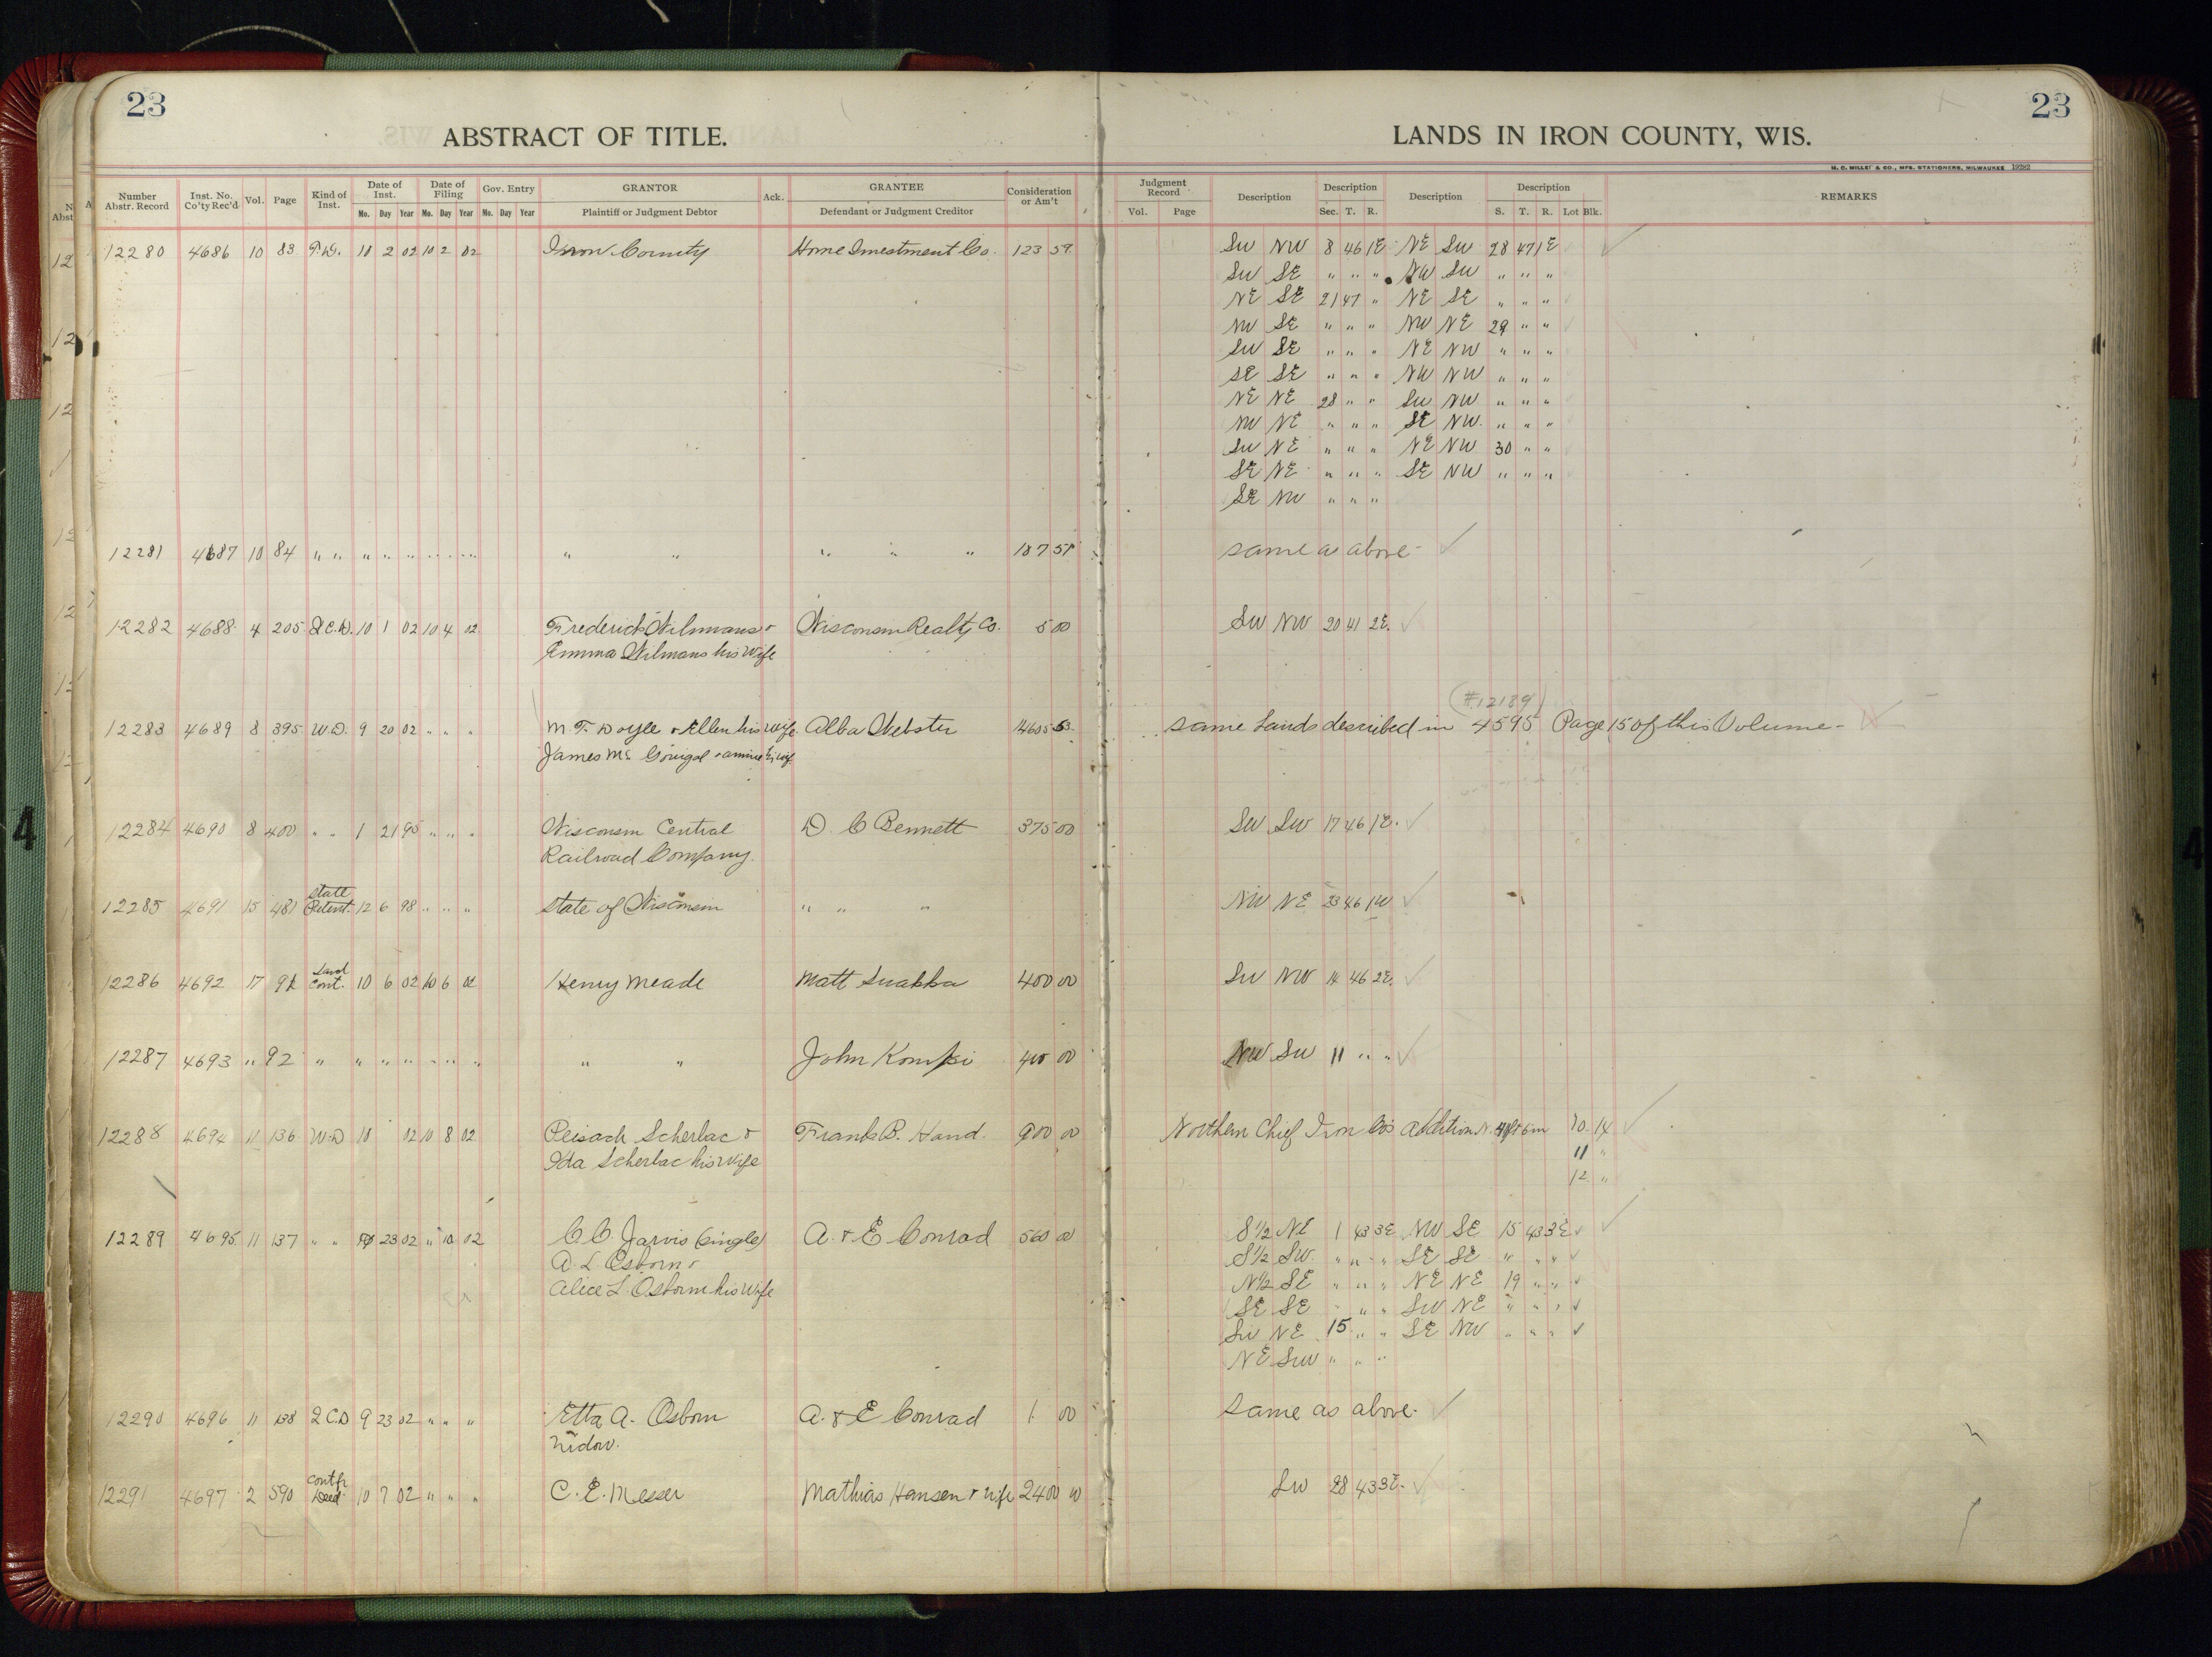 23
ABSTRACT OF TITLE.
LANDS IN IRON COUNTY, WIS.
23
H. C. MILLER & CO., MFG. STATIONERS, MILWAUKEE 19282
Number Abstr. Record | Inst. No. Co'ty Rec'd | Vol. | Page | Kind of Inst. | Date of Inst. Mo. Day Year | Date of Filing Mo. Day Year | Gov. Entry Mo. Day Year | GRANTOR Plaintiff or Judgment Debtor | Ack. | GRANTEE Defendant or Judgment Creditor | Consideration or Am't | Judgment Record Vol. Page | Description | Description Sec. T. R. | Description | Description S. T. R. Lot Blk. | REMARKS
12280 4686 10 83 T.D. 10 2 02 10 2 02 Iron County Home Investment Co. 123 59 SW NW 8 46 1E NE SW 28 47 1E
SW SE " " " NW SW " " "
NE SE 21 47 " NE SE " " "
NW SE " " " NW NE 29 " "
SW SE " " " NE NW " " "
SE SE " " " NW NW " " "
NE NE 28 " " SW NW " " "
NW NE " " " SE NW " " "
SW NE " " " NE NW 30 " "
SE NE " " " SE NW " " "
SE NW " " "
12281 4687 10 84 " " " " " " " " " " " " " 187 51 same as above
12282 4688 4 205 Q.C.D. 10 1 02 10 4 02 Frederick Wilmans & Wisconsin Realty Co. 5 00 SW NW 20 41 2E.
Emma Wilmans his Wife
(#12189)
12283 4689 8 395 W.D. 9 20 02 " " " M. F. Doyle & Ellen his Wife Alba Webster same Lands described in 4595 Page 15 of this Volume
James Mc Gonigal & his Wife
12284 4690 8 400 " " 1 21 95 " " " Wisconsin Central D. C Bennett 375 00 SW SW 17 46 1E.
Railroad Company.
12285 4691 15 481 State Patent. 12 6 98 " " " State of Wisconsin " " " NW NE 23 46 1W
12286 4692 17 91 Land Cont. 10 6 02 10 6 02 Henry Meade Matt 400 00 SW NW 14 46 2E.
12287 4693 " 92 " " " " " " " " " John 400 00 NW SW 11 " "
12288 4694 11 136 W.D 10 02 10 8 02 Peisach Scherlac & Frank B. Hand. 900 00 Northern Chief Iron Co's Addition N. 6 in 10 14
Ida Scherlac his Wife 11 "
12 "
12289 4695 11 137 " " 23 02 " 10 02 C. C. Jarvis (single) A. & E Conrad 560 00 S½ NE 1 43 3E NW SE 15 43 3E
A. L. Osborn & S½ SW. " " " SE SE " " "
Alice L. Osborn his Wife N½ SE " " " NE NE 19 " "
SE SE " " " SW NE " " "
SW NE 15 " " SE NW " " "
NE SW " " "
12290 4696 11 138 Q C.D 9 23 02 " " " Etta A. Osborn A. & E Conrad 1 00 same as above
Widow.
12291 4697 2 590 Deed 10 7 02 " " " C. E. Messer Mathias Hansen & Wife 2400 00 SW 28 43 3E.
4
4